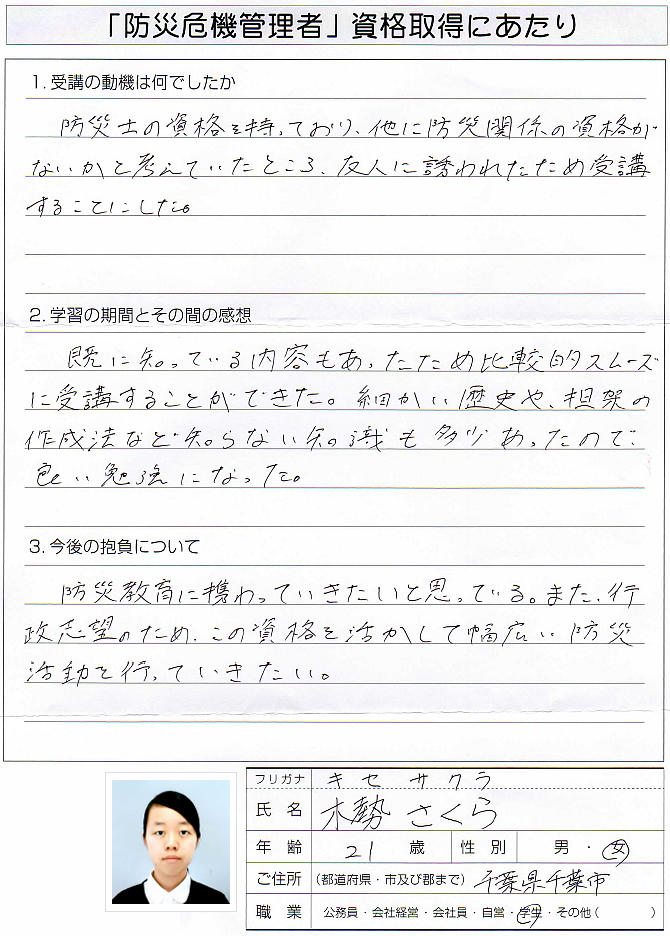 「防災危機管理者」資格取得にあたり
1. 受講の動機は何でしたか
防災士の資格を持っており、他に防災関係の資格が
ないかと考えていたところ、友人に誘われたため受講
することにした。
2. 学習の期間とその間の感想
既に知っている内容もあったため比較的スムーズ
に受講することができた。細かい歴史や、担架の
作成法など知らない知識も多少あったので、
良い勉強になった。
3. 今後の抱負について
防災教育に携わっていきたいと思っている。また、行
政志望のため、この資格を活かして幅広い防災
活動を行っていきたい。
フリガナ キセ サクラ
氏名 木勢 さくら
年齢 21 歳 性別 男・女
ご住所 (都道府県・市及び郡まで) 千葉県千葉市
職業 公務員・会社経営・会社員・自営・学生・その他( )